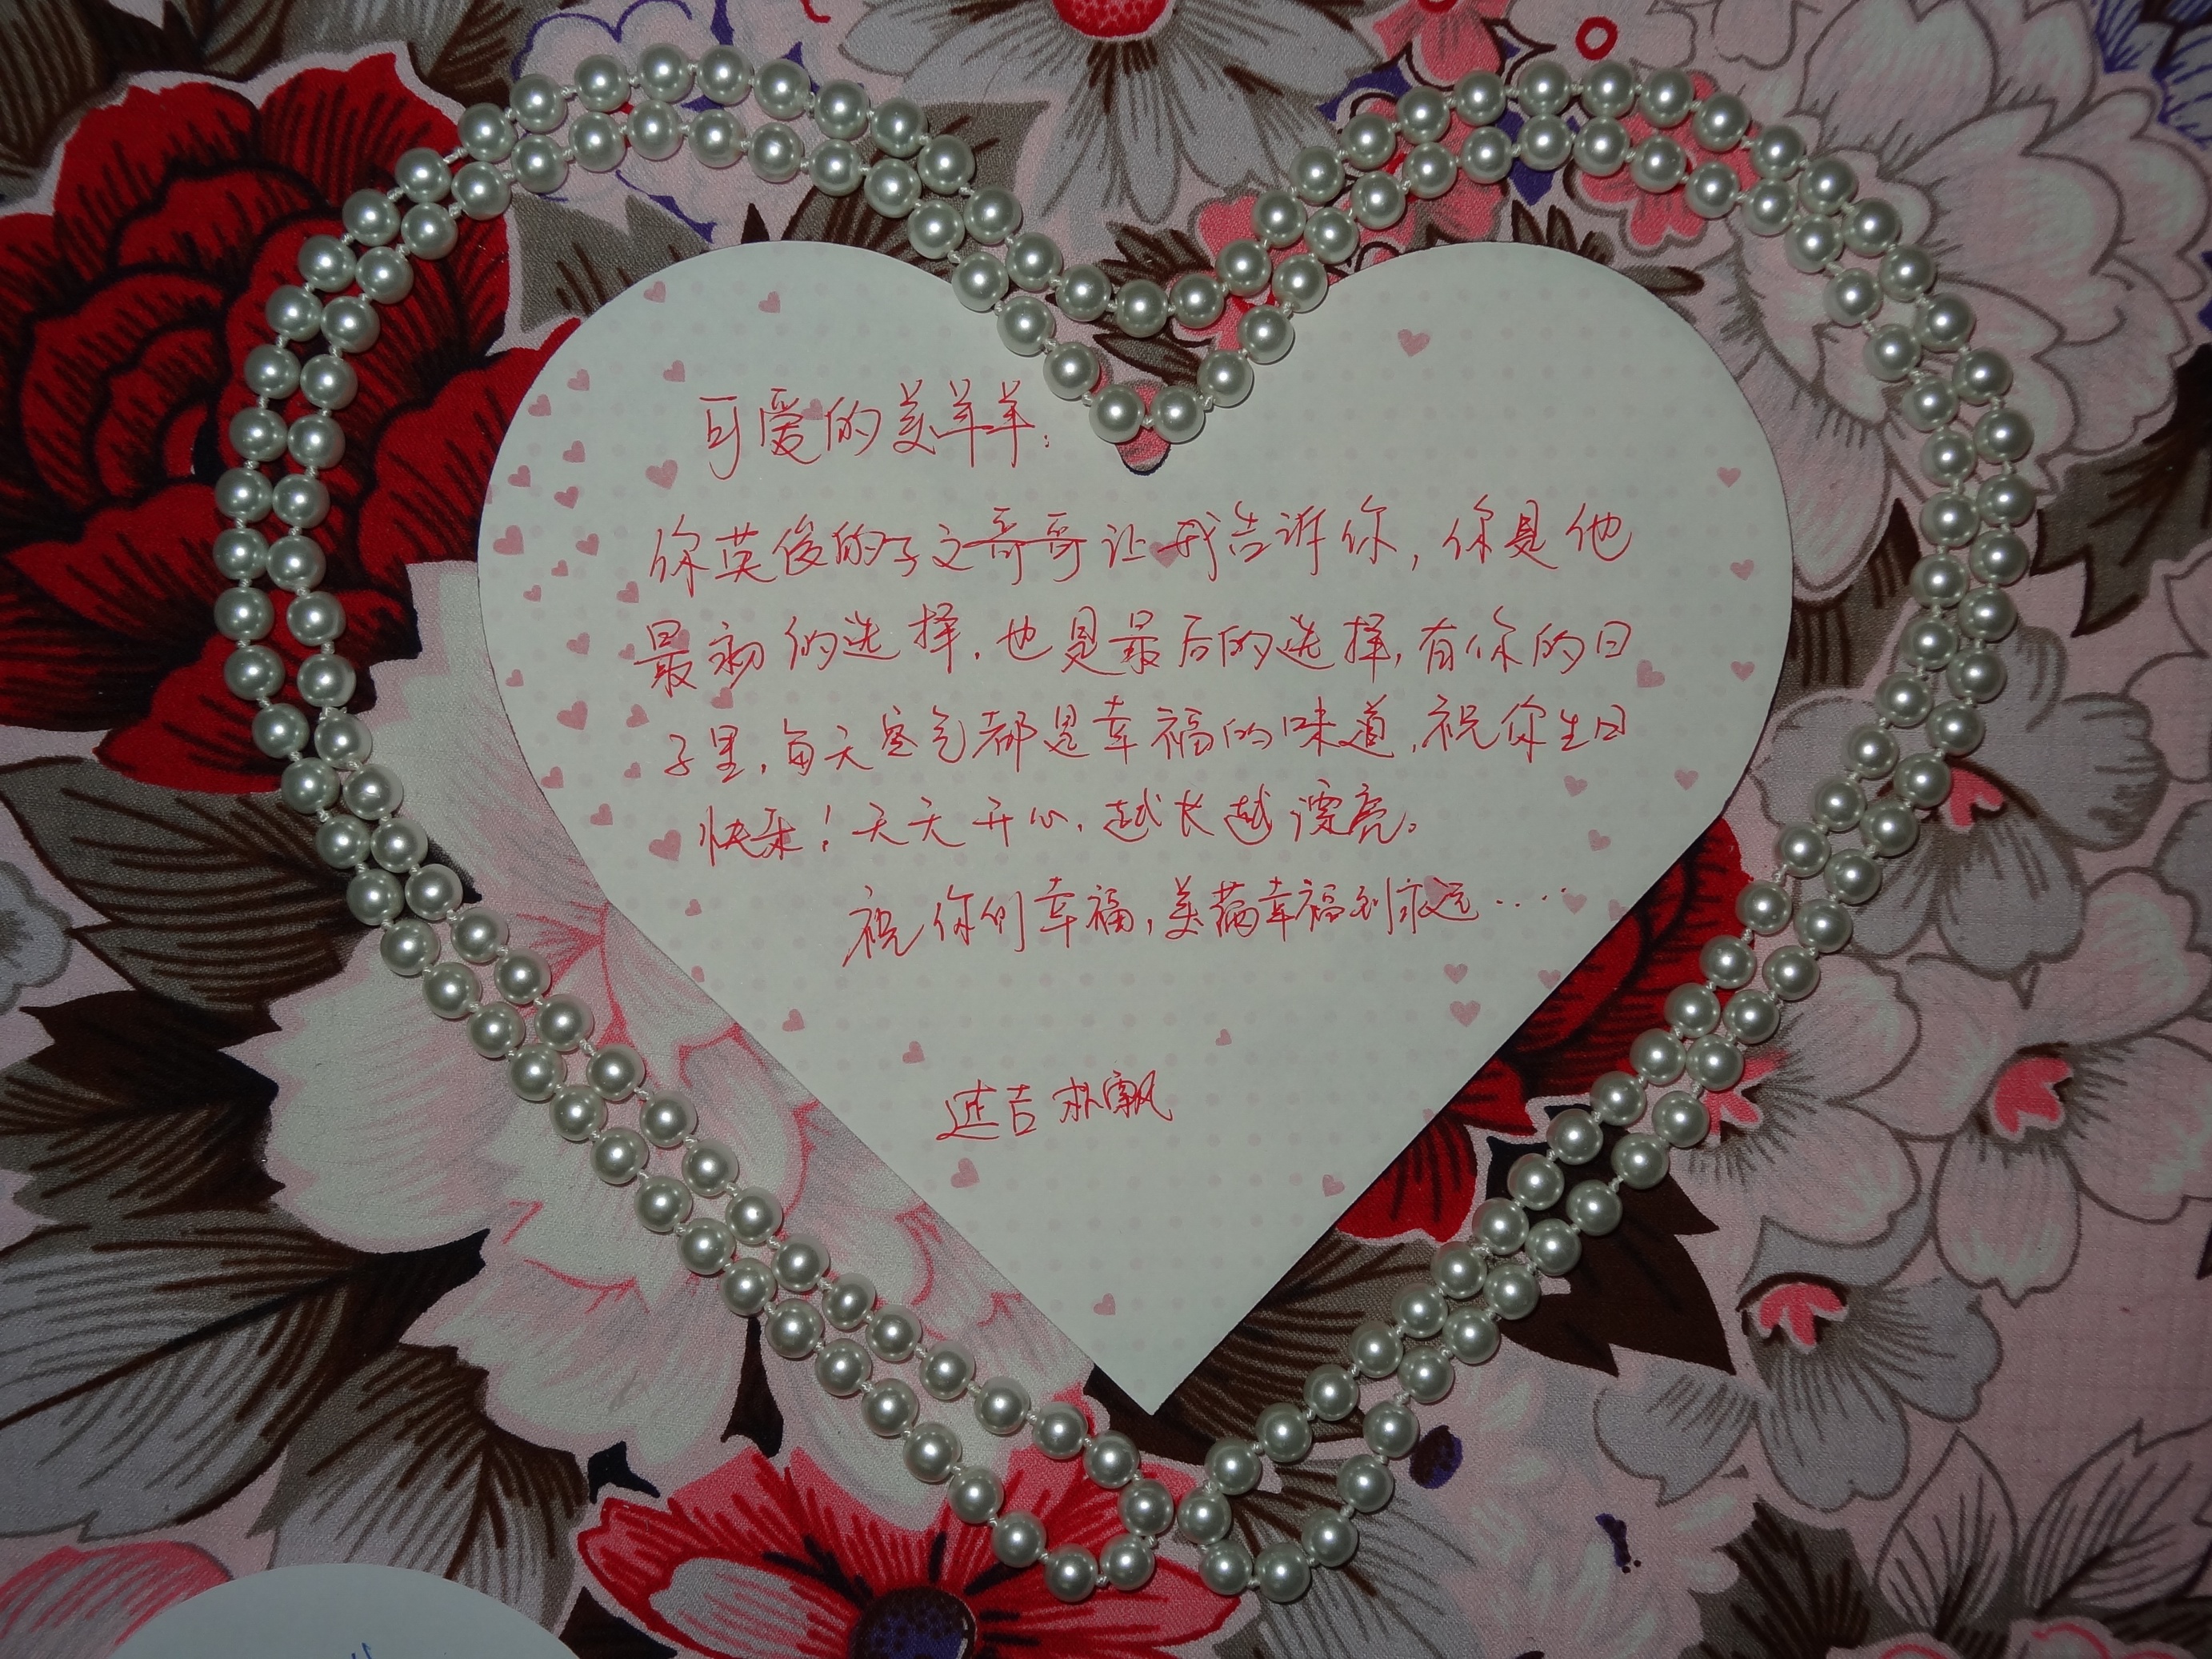 可爱的美羊羊：
你英俊的子文哥哥让我告诉你，你是他
最初的选择，也是最后的选择，有你的日
子里，每天空气都是幸福的味道，祝你生日
快乐！天天开心，越长越漂亮。
祝你们幸福，美满幸福到永远……
延吉 朴飘